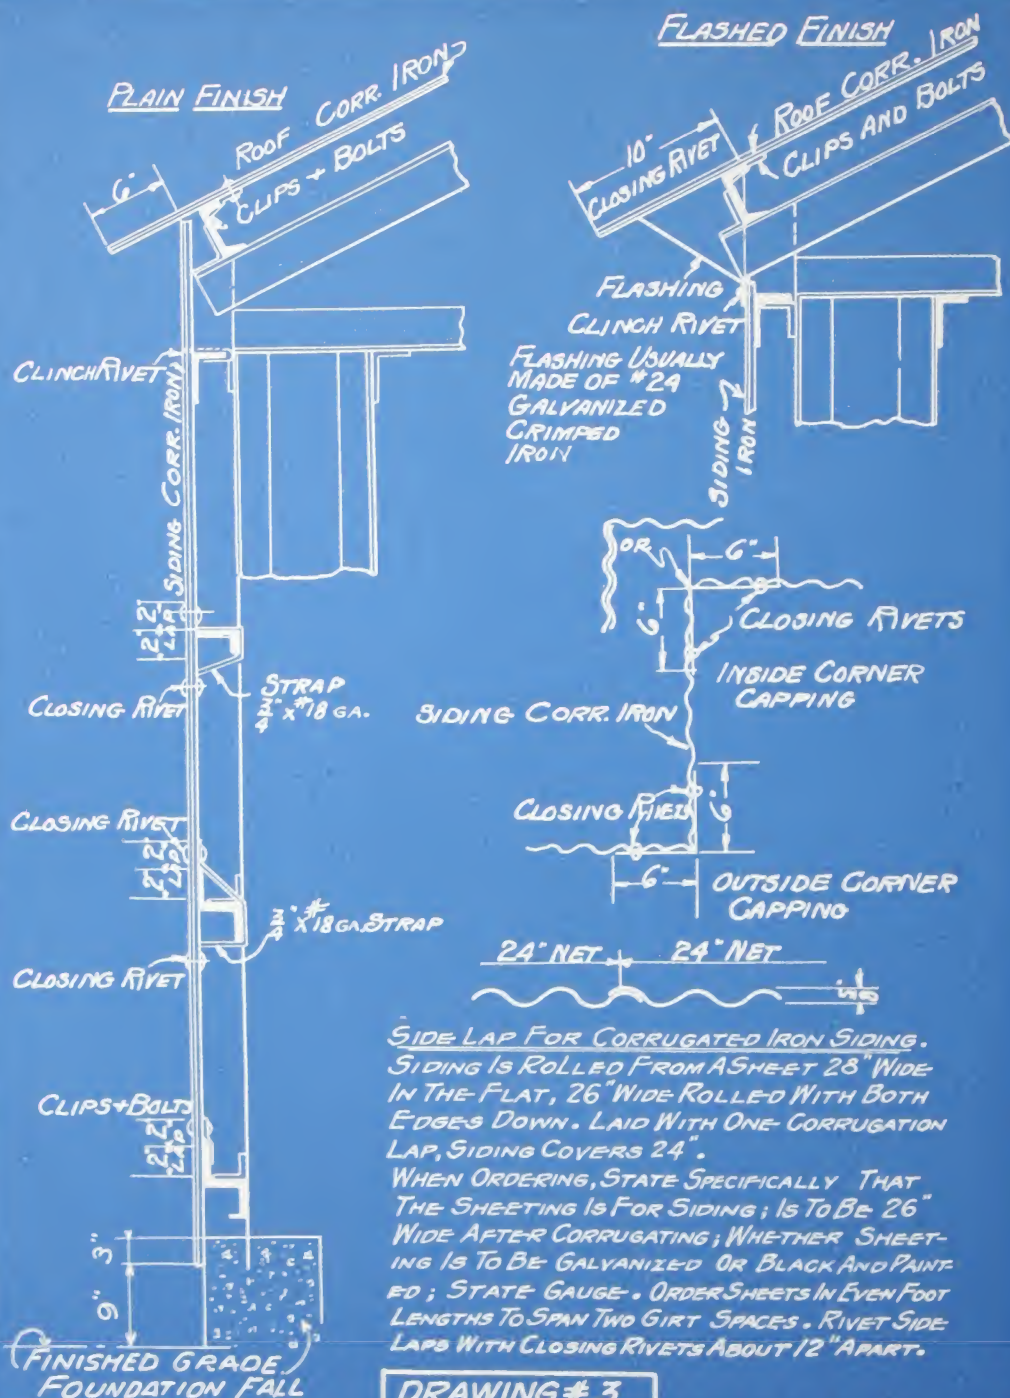 PLAIN FINISH
6"
ROOF CORR. IRON
CLIPS + BOLTS
CLINCH RIVET
SIDING CORR. IRON
2" 2"
LAP
CLOSING RIVET
STRAP
3/4" X #18 GA.
CLOSING RIVET
2" 2"
LAP
3/4" X #18 GA. STRAP
CLOSING RIVET
CLIPS + BOLTS
2" 2"
LAP
3"
9"
FINISHED GRADE
FOUNDATION FALL
FLASHED FINISH
10"
CLOSING RIVET
ROOF CORR. IRON
CLIPS AND BOLTS
FLASHING
CLINCH RIVET
FLASHING USUALLY
MADE OF #24
GALVANIZED
CRIMPED
IRON
SIDING
IRON
OR
6"
6"
CLOSING RIVETS
INSIDE CORNER
CAPPING
SIDING CORR. IRON
CLOSING RIVETS
6"
6"
OUTSIDE CORNER
CAPPING
24" NET 24" NET
5/8"
SIDE LAP FOR CORRUGATED IRON SIDING.
SIDING IS ROLLED FROM A SHEET 28" WIDE
IN THE FLAT, 26" WIDE ROLLED WITH BOTH
EDGES DOWN. LAID WITH ONE CORRUGATION
LAP, SIDING COVERS 24".
WHEN ORDERING, STATE SPECIFICALLY THAT
THE SHEETING IS FOR SIDING; IS TO BE 26"
WIDE AFTER CORRUGATING; WHETHER SHEET-
ING IS TO BE GALVANIZED OR BLACK AND PAINT-
ED; STATE GAUGE. ORDER SHEETS IN EVEN FOOT
LENGTHS TO SPAN TWO GIRT SPACES. RIVET SIDE
LAPS WITH CLOSING RIVETS ABOUT 12" APART.
DRAWING # 3